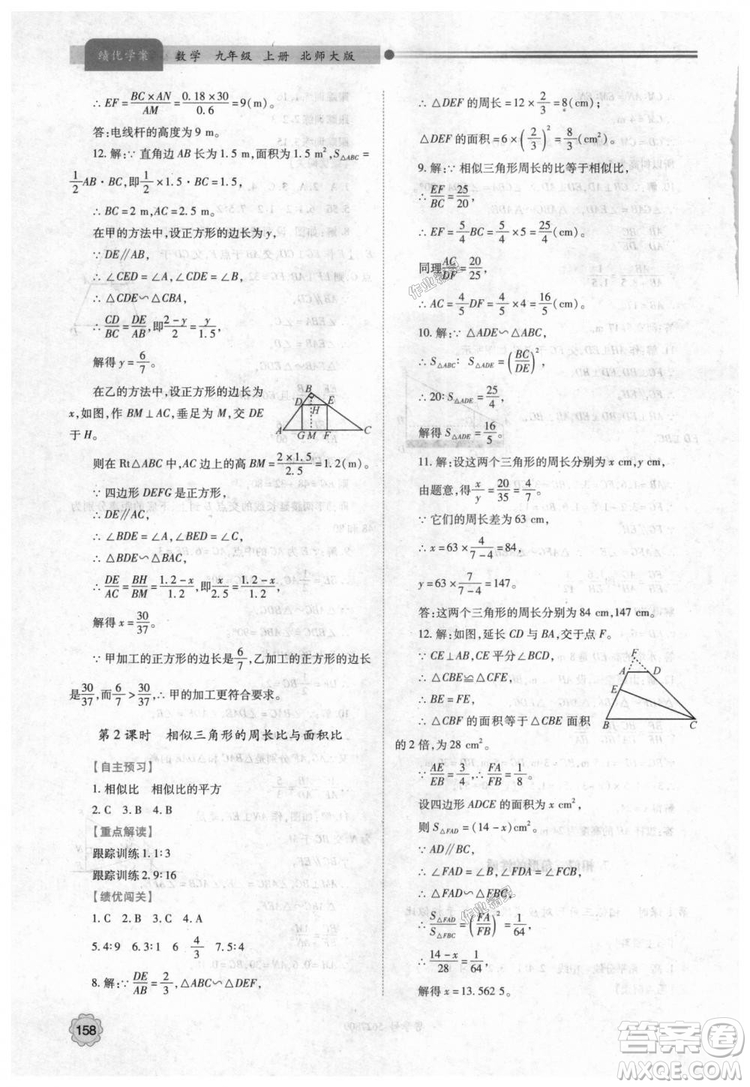 绩优学案 数学 九年级 上册 北师大版
∴ EF = BC×AN/AM = 0.18×30/0.6 = 9(m).
答:电线杆的高度为 9 m.
12. 解:∵ 直角边 AB 长 1.5 m,面积为 1.5 m²,S△ABC =
1/2 AB·BC,即 1/2 ×1.5·BC = 1.5,
∴ BC = 2 m,AC = 2.5 m,
在甲的方法中,设正方形的边长为 y,
∵ DE∥AB,
∴ ∠CED = ∠A,∠CDE = ∠B,
∴ △CDE∽△CBA,
∴ CD/BC = DE/AB,即 (2-y)/2 = y/1.5,
解得 y = 6/7.
在乙的方法中,设正方形的边长为
x,如图,作 BM⊥AC,垂足为 M,交 DE
于 H.
B
D H E
A G M F C
则在 Rt△ABC 中,AC 边上的高 BM = 2×1.5/2.5 = 1.2(m).
∵ 四边形 DEFG 是正方形,
∴ DE∥AC,
∴ ∠BDE = ∠A,∠BED = ∠C,
∴ △BDE∽△BAC,
∴ DE/AC = BH/BM = (1.2-x)/1.2 = x/2.5,
解得 x = 30/37.
∵ 甲加工的正方形的边长是 6/7,乙加工的正方形的边长是
30/37,而 6/7 > 30/37,∴ 甲的加工更符合要求.
第 2 课时 相似三角形的周长比与面积比
【自主预习】
1. 相似比 相似比的平方
2. C 3. B 4. B
【重点解读】
跟踪训练 1. 1∶3
跟踪训练 2. 9∶16
【绩优闯关】
1. C 2. B 3. C 4. A
5. 4∶9 6. 3∶1 4/3 7. 5∶4
8. 解:∵ DE/AB = 2/3,△ABC∽△DEF,
158
∴ △DEF 的周长 = 12×2/3 = 8(cm);
△DEF 的面积 = 6×(2/3)² = 8/3(cm²).
9. 解:∵ 相似三角形周长的比等于相似比,
∴ EF/BC = 25/20,
∴ EF = 5/4 BC = 5/4 × 8 = 10(cm).
同理 AC/DF = 20/25,
∴ AC = 4/5 DF = 4/5 × 15 = 12(cm).
10. 解:∵ △ADE∽△ABC,
∴ S△ABC∶S△ADE = (BC/DE)²,
∴ 20∶S△ADE = 25/4,
解得 S△ADE = 16/5.
11. 解:设这两个三角形的周长分别为 x cm,y cm,
由题意,得 x/y = 20/35 = 4/7,
∵ 它们的周长差为 63 cm,
∴ x = 63×4/(7-4) = 84,
y = 63×7/(7-4) = 147.
答:这两个三角形的周长分别为 84 cm,147 cm.
12. 解:如图,延长 CD 与 BA,交于点 F.
∵ CE⊥AB,CE 平分∠BCD,
∴ △CBE≌△CFE,
∴ BE = FE,
∴ △CBF 的面积等于△CBE 面积
的 2 倍,为 28 cm².
F
A D
E
B C
∵ AE/EB = 3/4,∴ FA/FB = 1/8.
设四边形 ADCE 的面积为 x cm²,
则 S△FAD = (14-x) cm².
∵ AD∥BC,
∴ ∠FAD = ∠FBC,∠FDA = ∠FCB,
∴ △FAD∽△FBC,
∴ S△FAD/S△FBC = (FA/FB)² = 1/64,
∴ (14-x)/28 = 1/64,
解得 x = 13.562 5.
作业帮
作业精灵
答案圈
MXQE.COM